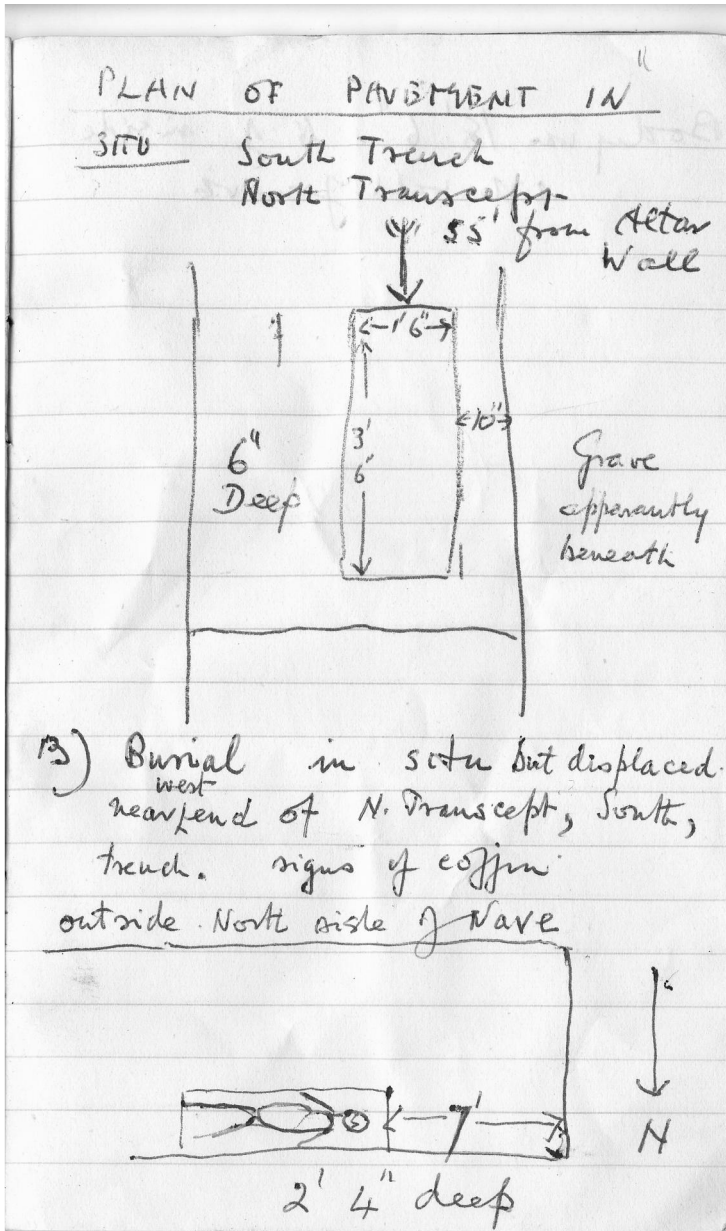 PLAN OF PAVEMENT IN
SITU South Trench
North Transcept
55' from Altar
Wall
1' 6"
10"
3'
6'
6"
Deep
Grave
apparantly
beneath
B) Burial in situ but displaced.
west
near end of N. Transcept, South,
trench. signs of coffin
outside North aisle of Nave
7'
N
2' 4" deep